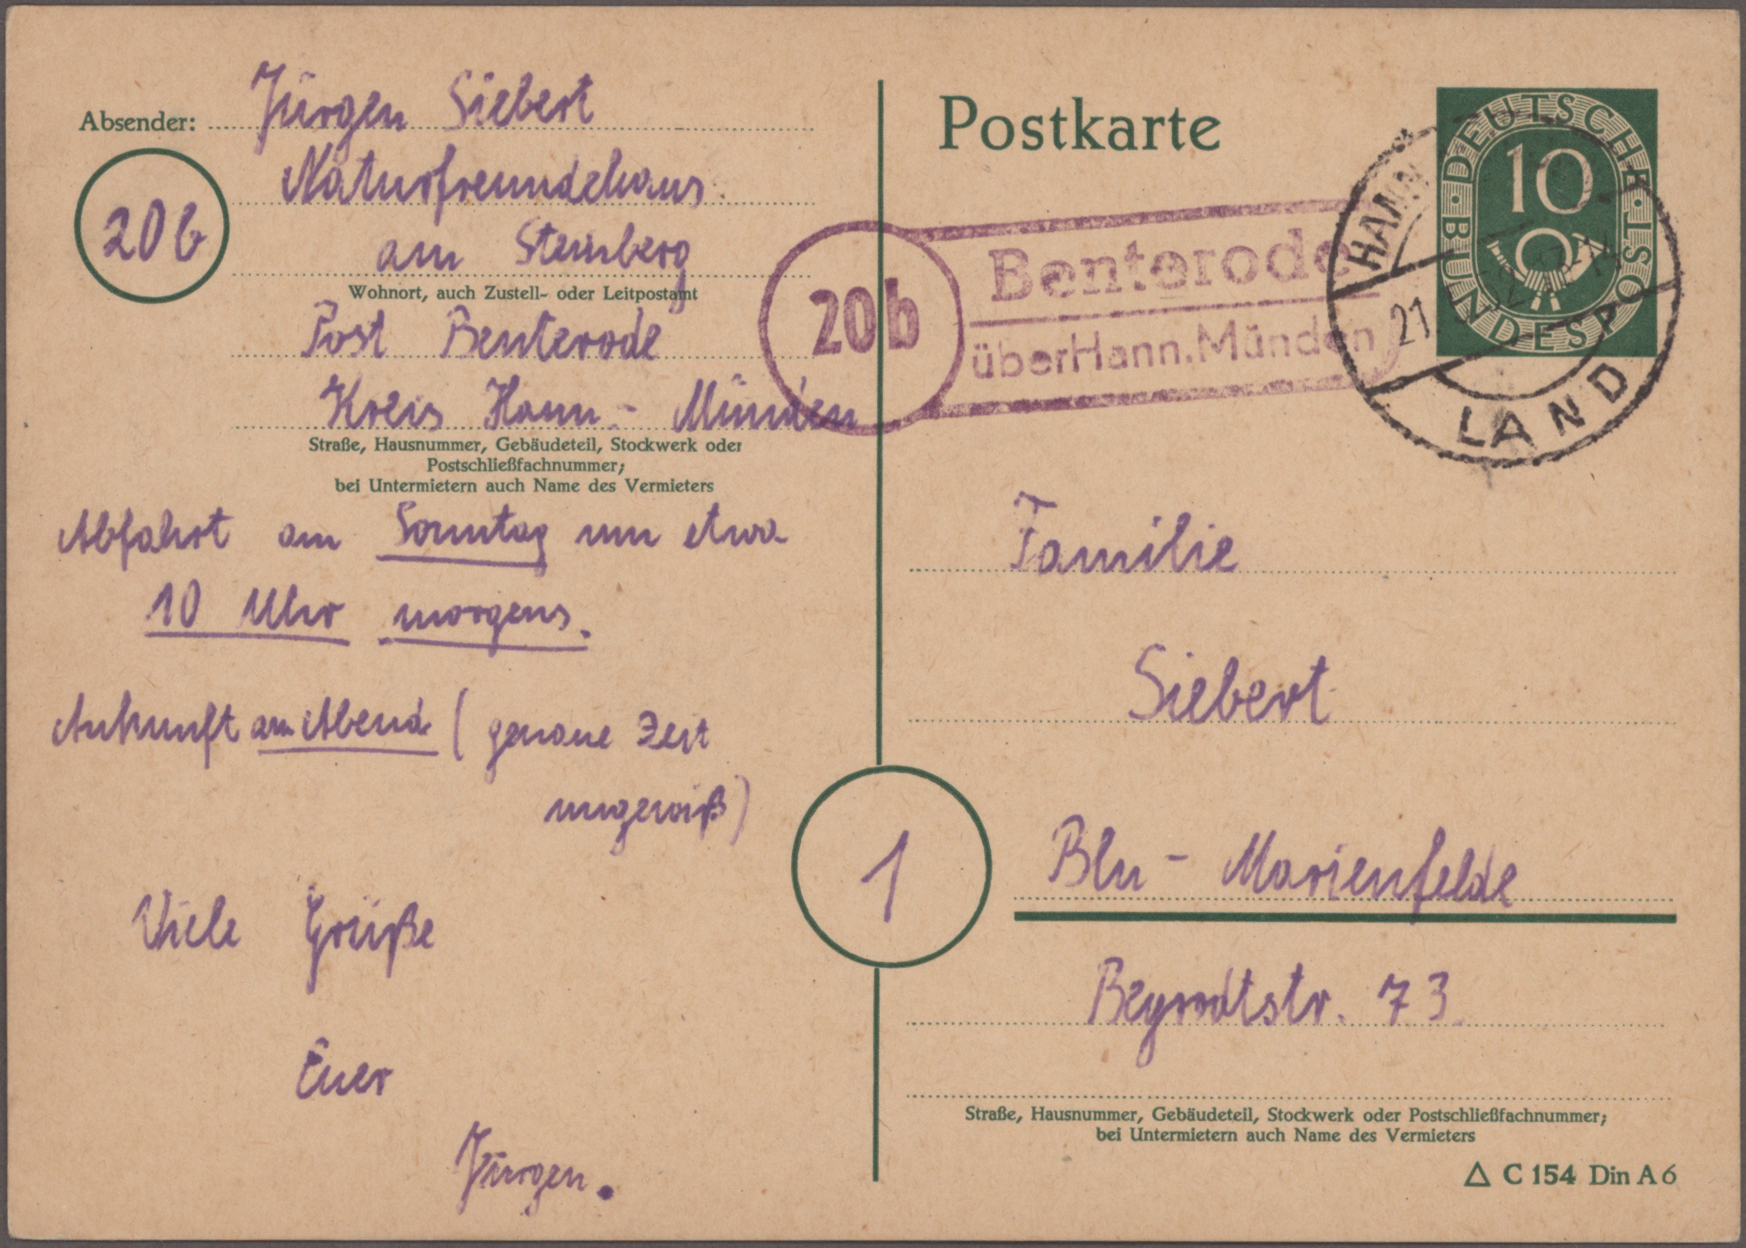 Absender: Jürgen Siebert
Naturfreundehaus
am Steinberg
20b
Wohnort, auch Zustell- oder Leitpostamt
Post Benterode
Kreis Hann.- Münden
Straße, Hausnummer, Gebäudeteil, Stockwerk oder
Postschließfachnummer;
bei Untermietern auch Name des Vermieters
Abfahrt am Sonntag um etwa
10 Uhr morgens.
Ankunft am Abend (genaue Zeit
ungewiß)
Viele Grüße
Euer
Jürgen.
Postkarte
20b
Benterode
über Hann. Münden
DEUTSCHE BUNDESPOST
10
HANN
21
LAND
Familie
Siebert
1
Bln - Marienfelde
Beyrodtstr. 73
Straße, Hausnummer, Gebäudeteil, Stockwerk oder Postschließfachnummer;
bei Untermietern auch Name des Vermieters
△ C 154 Din A 6